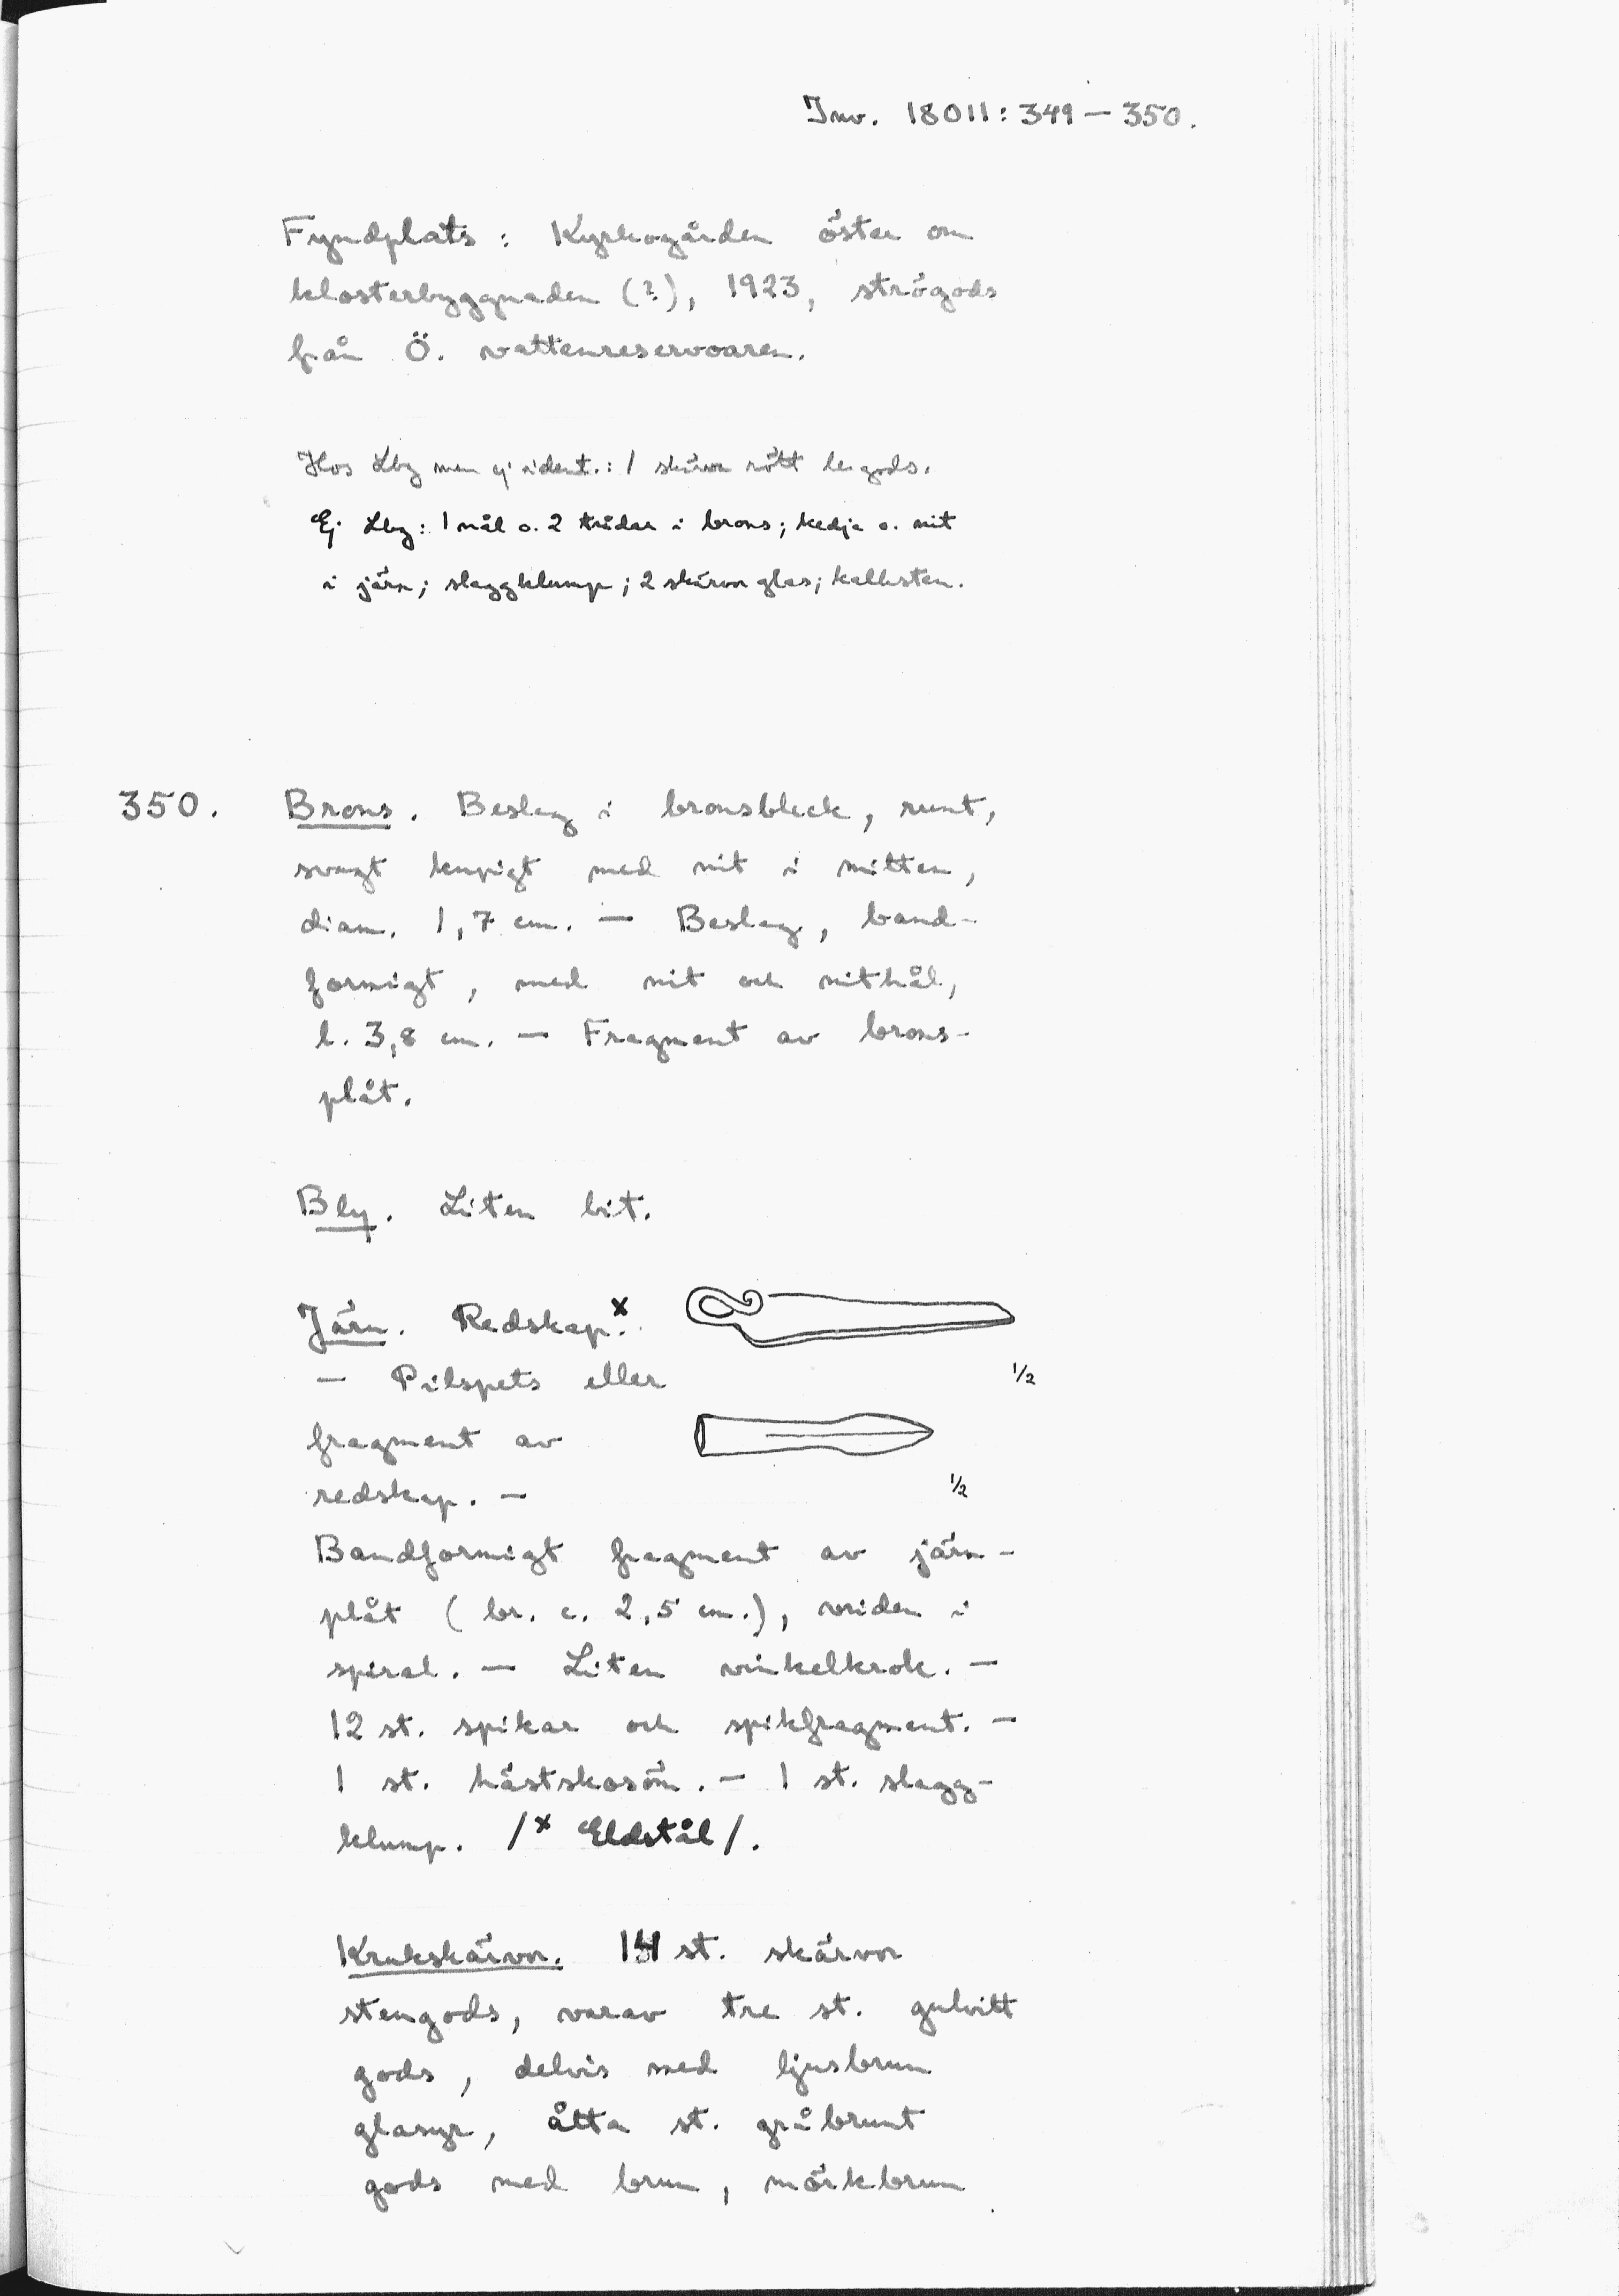 Inv. 18011: 349 — 350.
Fyndplats: Kyrkogården öster om
klosterbyggnaden (?), 1923, strögods
från Ö. vattenreservoaren.
Hos Lbg men ej ident.: 1 skärva rött lergods.
Ej Lbg: 1 nål o. 2 trådar i brons; kedja o. nit
i järn; slaggklump; 2 skärvor glas; kalksten.
350. Brons. Beslag i bronsbleck, runt,
svagt kupigt med nit i mitten,
diam. 1,7 cm. — Beslag, band-
formigt, med nit och nithål,
l. 3,8 cm. — Fragment av brons-
plåt.
Bly. Liten bit.
Järn. Redskap.x
— Pilspets eller
1/2
fragment av
redskap. —
1/2
Bandformigt fragment av järn-
plåt (br. c. 2,5 cm.), vriden i
spiral. — Liten vinkelkrok. —
12 st. spikar och spikfragment. —
1 st. hästskosöm. — 1 st. slagg-
klump. /x Eldstål/.
Krukskärvor. 14 st. skärvor
stengods, varav tre st. gulvitt
gods, delvis med ljusbrun
glasyr, åtta st. gråbrunt
gods med brun, mörkbrun